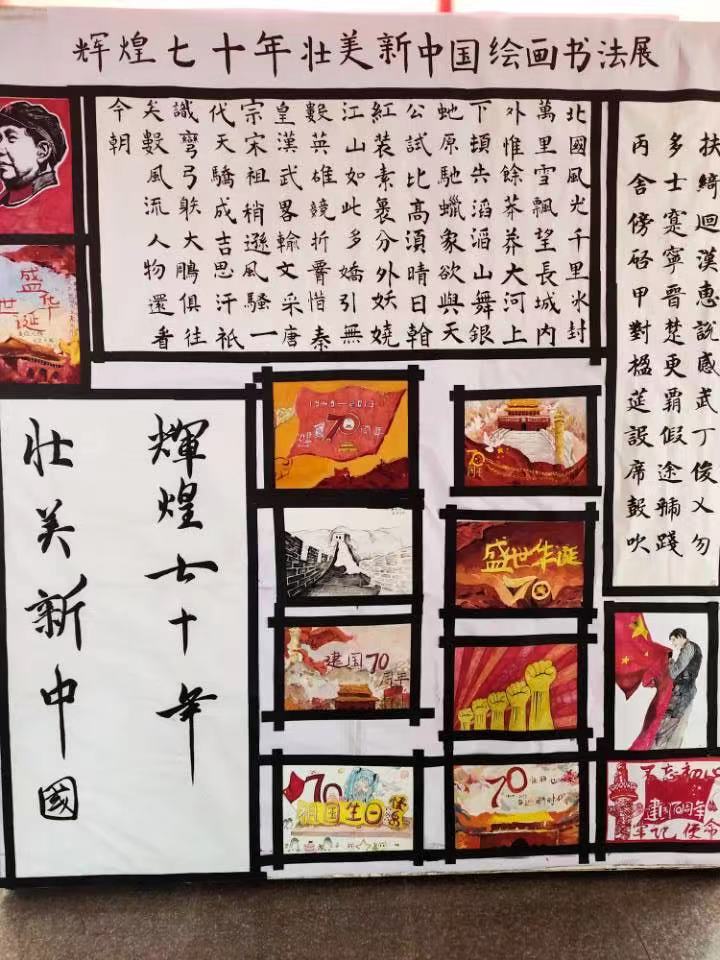 辉煌七十年壮美新中国绘画书法展
北國風光千里冰封
萬里雪飄望長城内
外惟餘莽莽大河上
下頓失滔滔山舞銀
虵原馳蠟象欲與天
公試比高湏晴日翰
紅裝素裹分外妖嬈
江山如此多嬌引無
數英雄競折腰惜秦
皇漢武畧輸文采唐
宗宋祖稍遜風騷一
代天驕成吉思汗祇
識彎弓躲大鵰俱往
矣數風流人物還看
今朝
扶綺迴漢惠說感武丁俊乂勿
多士寔寧晉楚更霸假途踐
丙舍傍啓甲對楹筵設席鼓吹
盛世华诞
輝煌七十年
壯美新中國
1949-2019
建国70周年
70
盛世华诞
70
建国70周年
70
祖国生日快乐
70
不忘初心
建国70周年
牢记使命